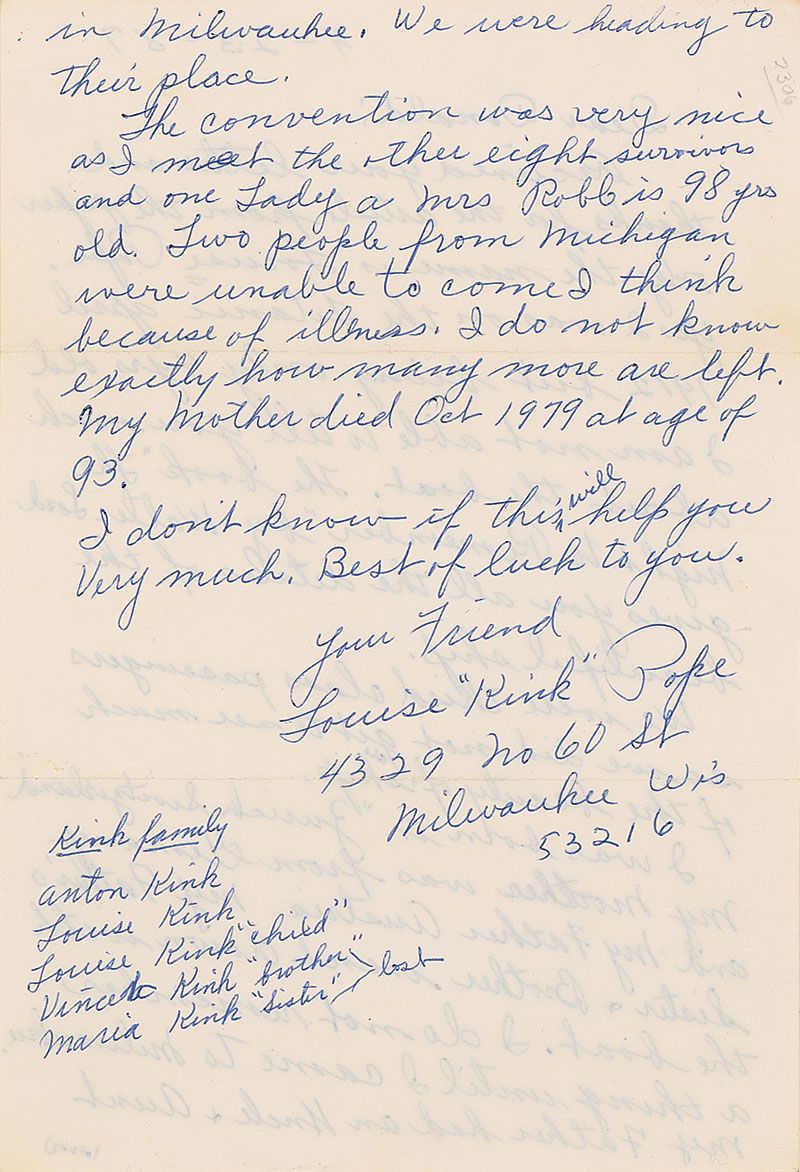 in Milwaukee. We were heading to
their place.
The convention was very nice
as I meet the other eight survivors
and one Lady a Mrs Robb is 98 yrs
old. Two people from Michigan
were unable to come I think
because of illness. I do not know
exactly how many more are left.
My Mother died Oct 1979 at age of
93.
I don't know if this will help you
Very much. Best of luck to you.
Your Friend
Louise "Kink" Pope
4329 No 60 St
Milwaukee Wis
53216
Kink family
Anton Kink
Louise Kink
Louise Kink "child"
Vincent Kink "brother"
Maria Kink "Sister" lost